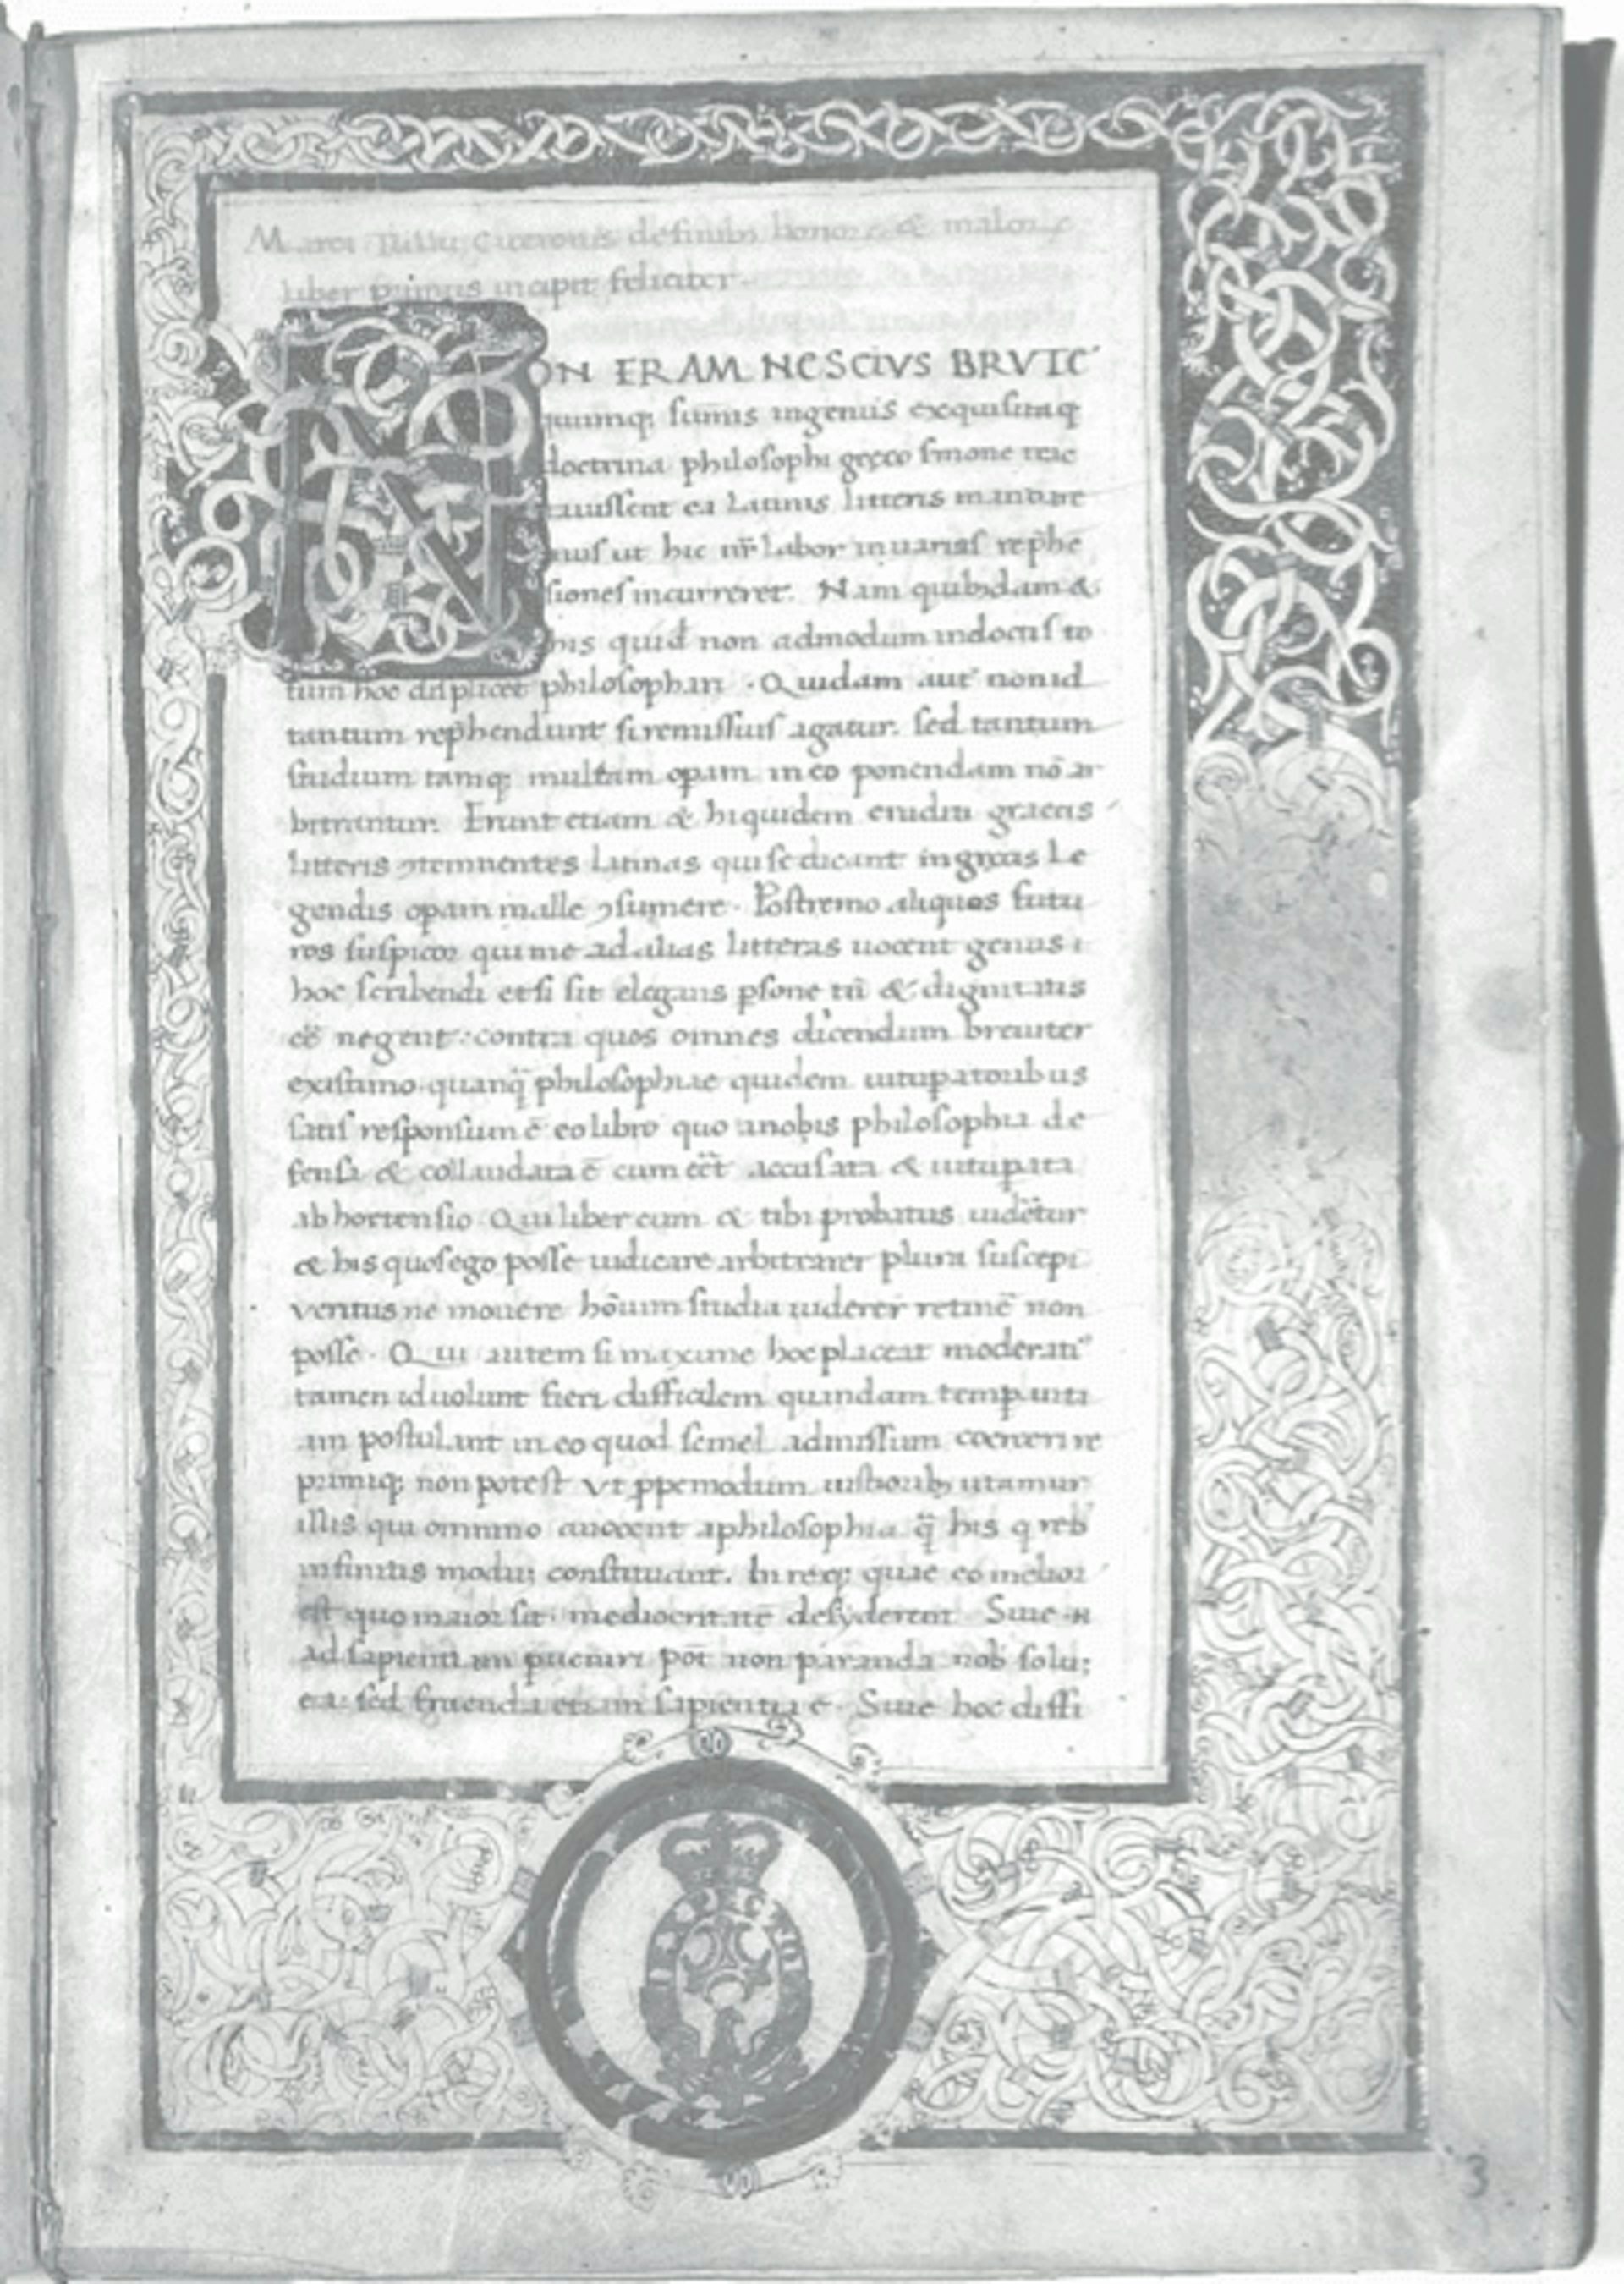 Marci Tullii Ciceronis definibꝫ bonoꝝ & maloꝝ
liber primus incipit feliciter
NON ERAM NESCIVS BRVTE
quumqꝫ sumis ingeniis exquisitaq
doctrina philosophi greco smone trac
tauissent ea Latinis litteris mandare
mus ut hic nr̄ labor in uarias rephē
siones incurreret. Nam quibꝫdam &
his quid non admodum indoctis to
tum hoc displicet philosophari. Quidam aut̄ non id
tantum rephendunt si remissius agatur. sed tantum
studium tamqꝫ multam opam in eo ponendam nō ar
bitrantur. Erunt etiam & hi quidem eruditi graecis
litteris ↄtemnentes Latinas qui se dicant in grecis Le
gendis opam malle ↄsumere. Postremo aliquos futu
ros suspicor qui me ad alias litteras uocent genus i
hoc scribendi etsi sit elegans psone tn̄ & dignitatis
eē negent. contra quos omnes dicendum breuiter
existimo. quanq̄ philosophiae quidem uituperatoribus
satis responsum ē eo libro quo a nobis philosophia de
fensa & collaudata ē cum eēt accusata & uituperata
ab hortensio. Qui liber cum & tibi probatus uidētur
& his quos ego posse iudicare arbitrarer plura suscepi
ueritus ne mouere hōium studia uiderer retinē non
posse. Qui autem si maxime hoc placeat moderati⁹
tamen id uolunt fieri difficilem quandam temp anti
am postulant in eo quod semel admissum coerceri re
primiqꝫ non potest Vt ppemodum iustioribꝫ utamur
illis qui omnino auocent a philosophia q̄ his q reb
infinitis modum constituant. In reqꝫ quae eo melior
est quo maior sit mediocritatē desyderent. Siue .n
ad sapientiam pueniri pōt non paranda nob solū:
ea: sed fruenda etiam sapientia ē. Siue hoc diffi
3